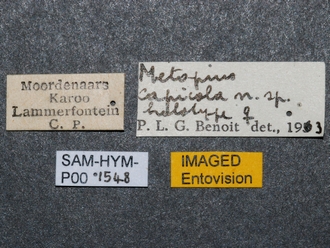 Moordenaars
Karoo
Lammerfontein
C. P.
Metopius
capicola n. sp.
holotype ♀
P. L. G. Benoit det., 1953
SAM-HYM-
P00 1548
IMAGED
Entovision